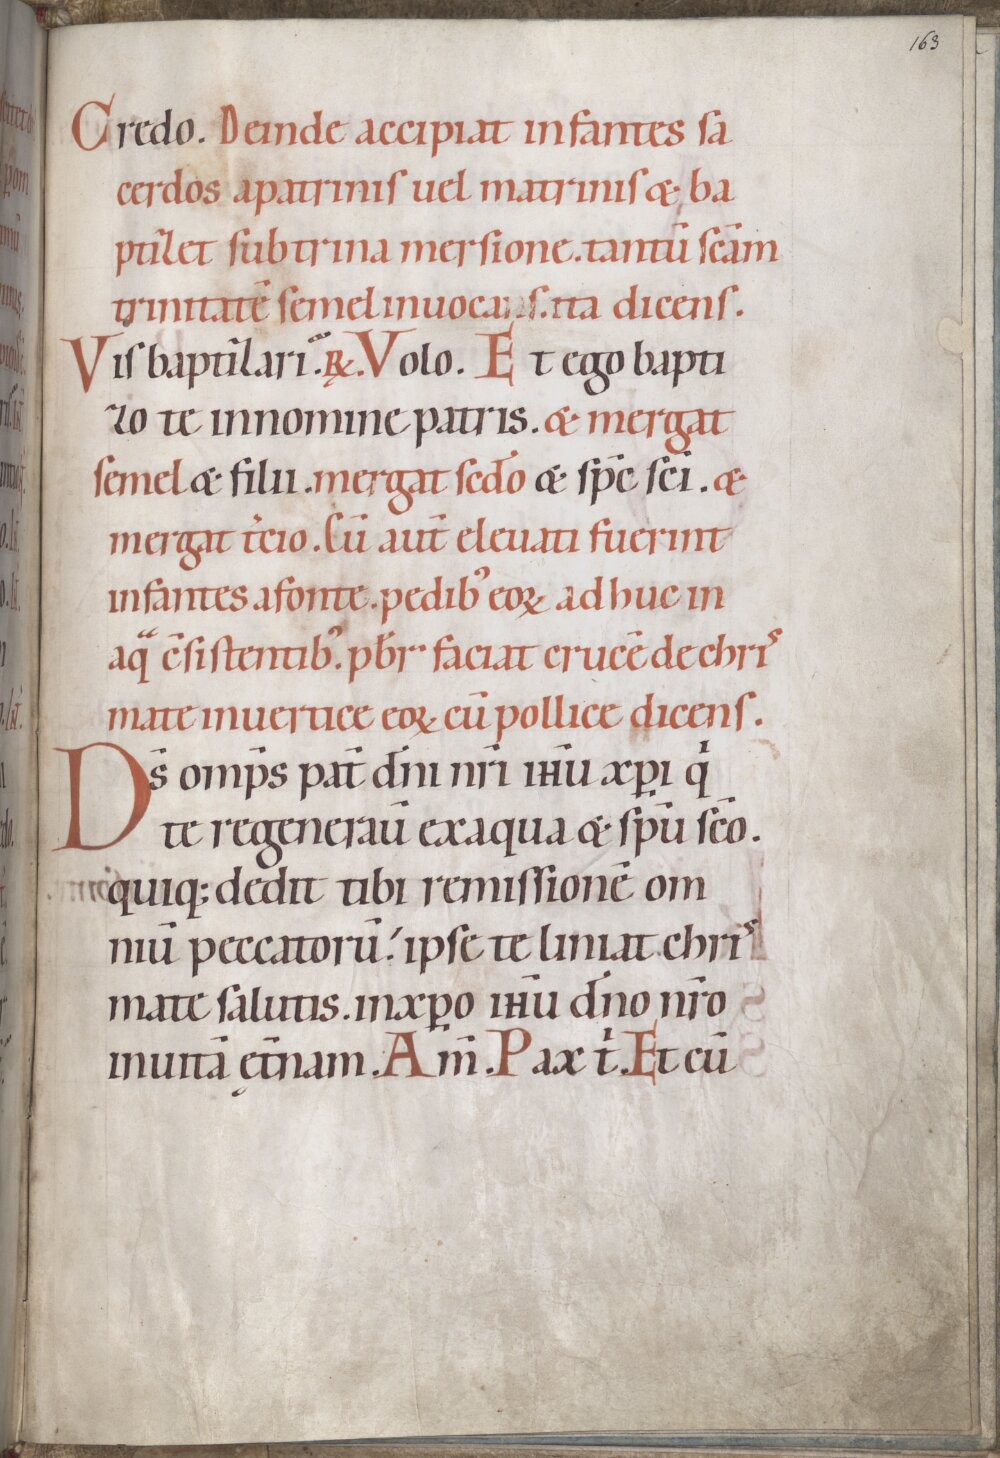 163
Credo. Deinde accipiat infantes sa
cerdos apatrinis uel matrinis & ba
ptizet sub trina mersione. tantū scām
trinitatē semel inuocans. ita dicens.
Vis baptizari. ℟. Volo. Et ego bapti
zo te innomine patris. & mergat
semel & filii. mergat sedo & spē scī. &
mergat tcio. Cū aut̄ eleuati fuerint
infantes afonte. pedib' eoꝝ adhuc in
aq̄ c̄sistentib'. pbr faciat crucē de chris
mate inuertice eoꝝ cū pollice dicens.
Ds̄ omp̄s pat̄ dn̄i nr̄i ihū xp̄i q
te regenerau̅ exaqua & spū scō.
quiq; dedit tibi remissionē om
niū peccatorū. ipse te liniat chris
mate salutis. inxp̄o ihū dn̄o nr̄o
inuitā ęt̄nam. Am̄. Pax t. Et cū